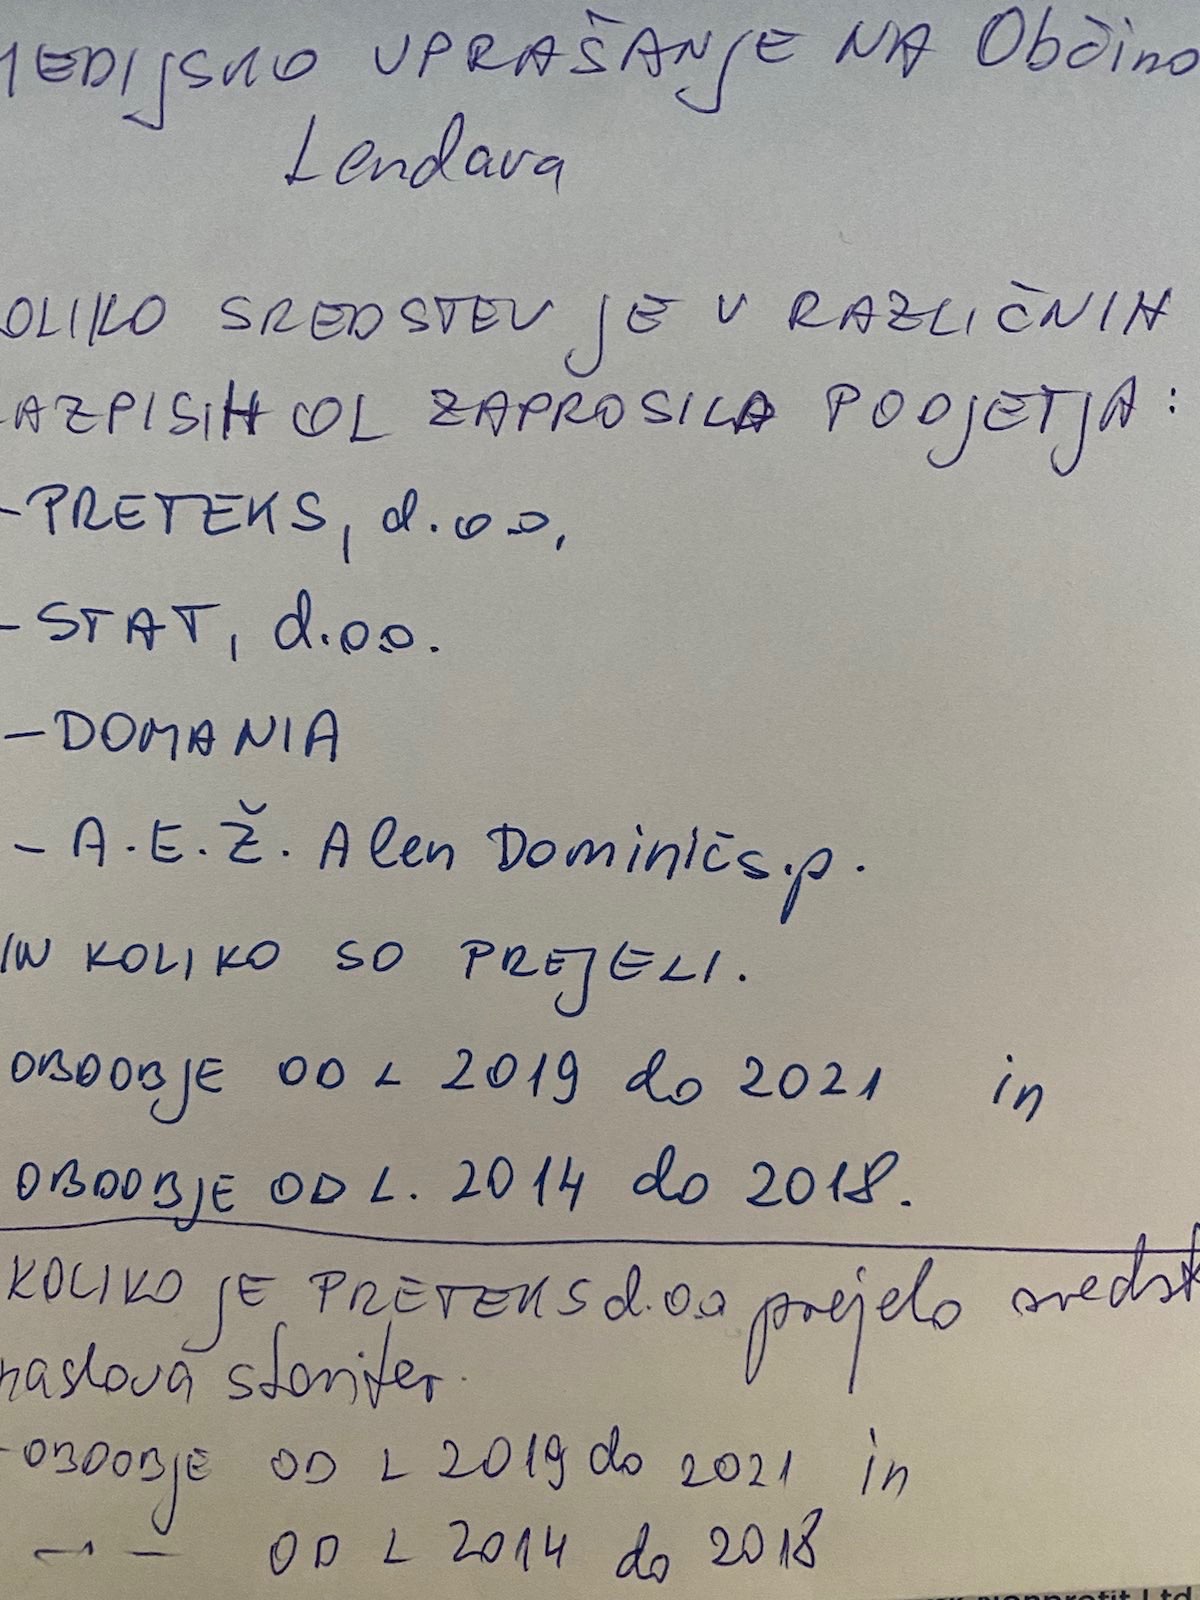 MEDIJSKO VPRAŠANJE NA Občino
Lendava
KOLIKO SREDSTEV JE V RAZLIČNIH
RAZPISIH OL ZAPROSILA PODJETJA:
- PRETEKS, d.o.o.
- STAT, d.o.o.
- DOMANIA
- A.E.Ž. Alen Dominič s.p.
IN KOLIKO SO PREJELI.
OBDOBJE OD L 2019 do 2021 in
OBDOBJE OD L. 2014 do 2018.
KOLIKO JE PRETEKS d.o.o prejelo sredst
naslova storitev.
- OBDOBJE OD L 2019 do 2021 in
-"- OD L 2014 do 2018
nonprofit Ltd